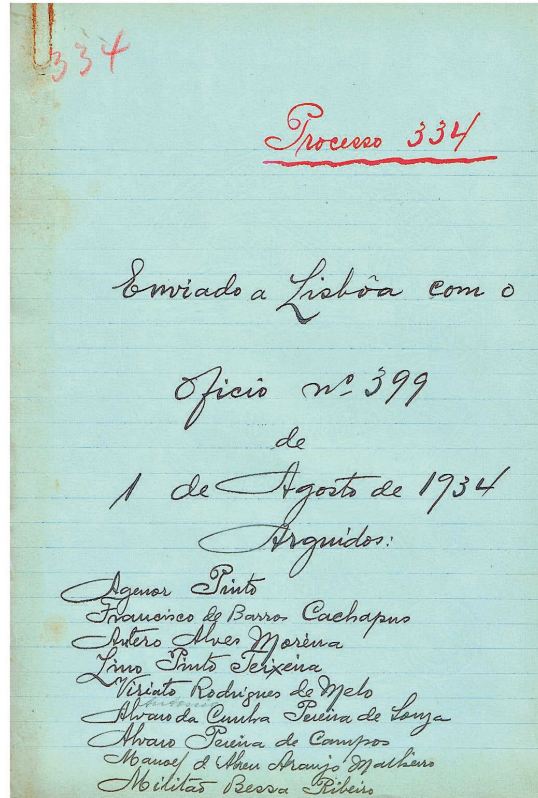 334
Processo 334
Enviado a Lisbôa com o
Oficio nº 399
de
1 de Agosto de 1934
Arguidos:
Agenor Pinto
Francisco de Barros Cachapus
Antero Alves Moreira
Lino Pinto Teixeira
Viriato Rodrigues de Melo
Alvaro da Cunha Pereira de Souza
Alvaro Pereira de Campos
Manoel d'Abreu Araujo Malheiro
Militão Bessa Ribeiro